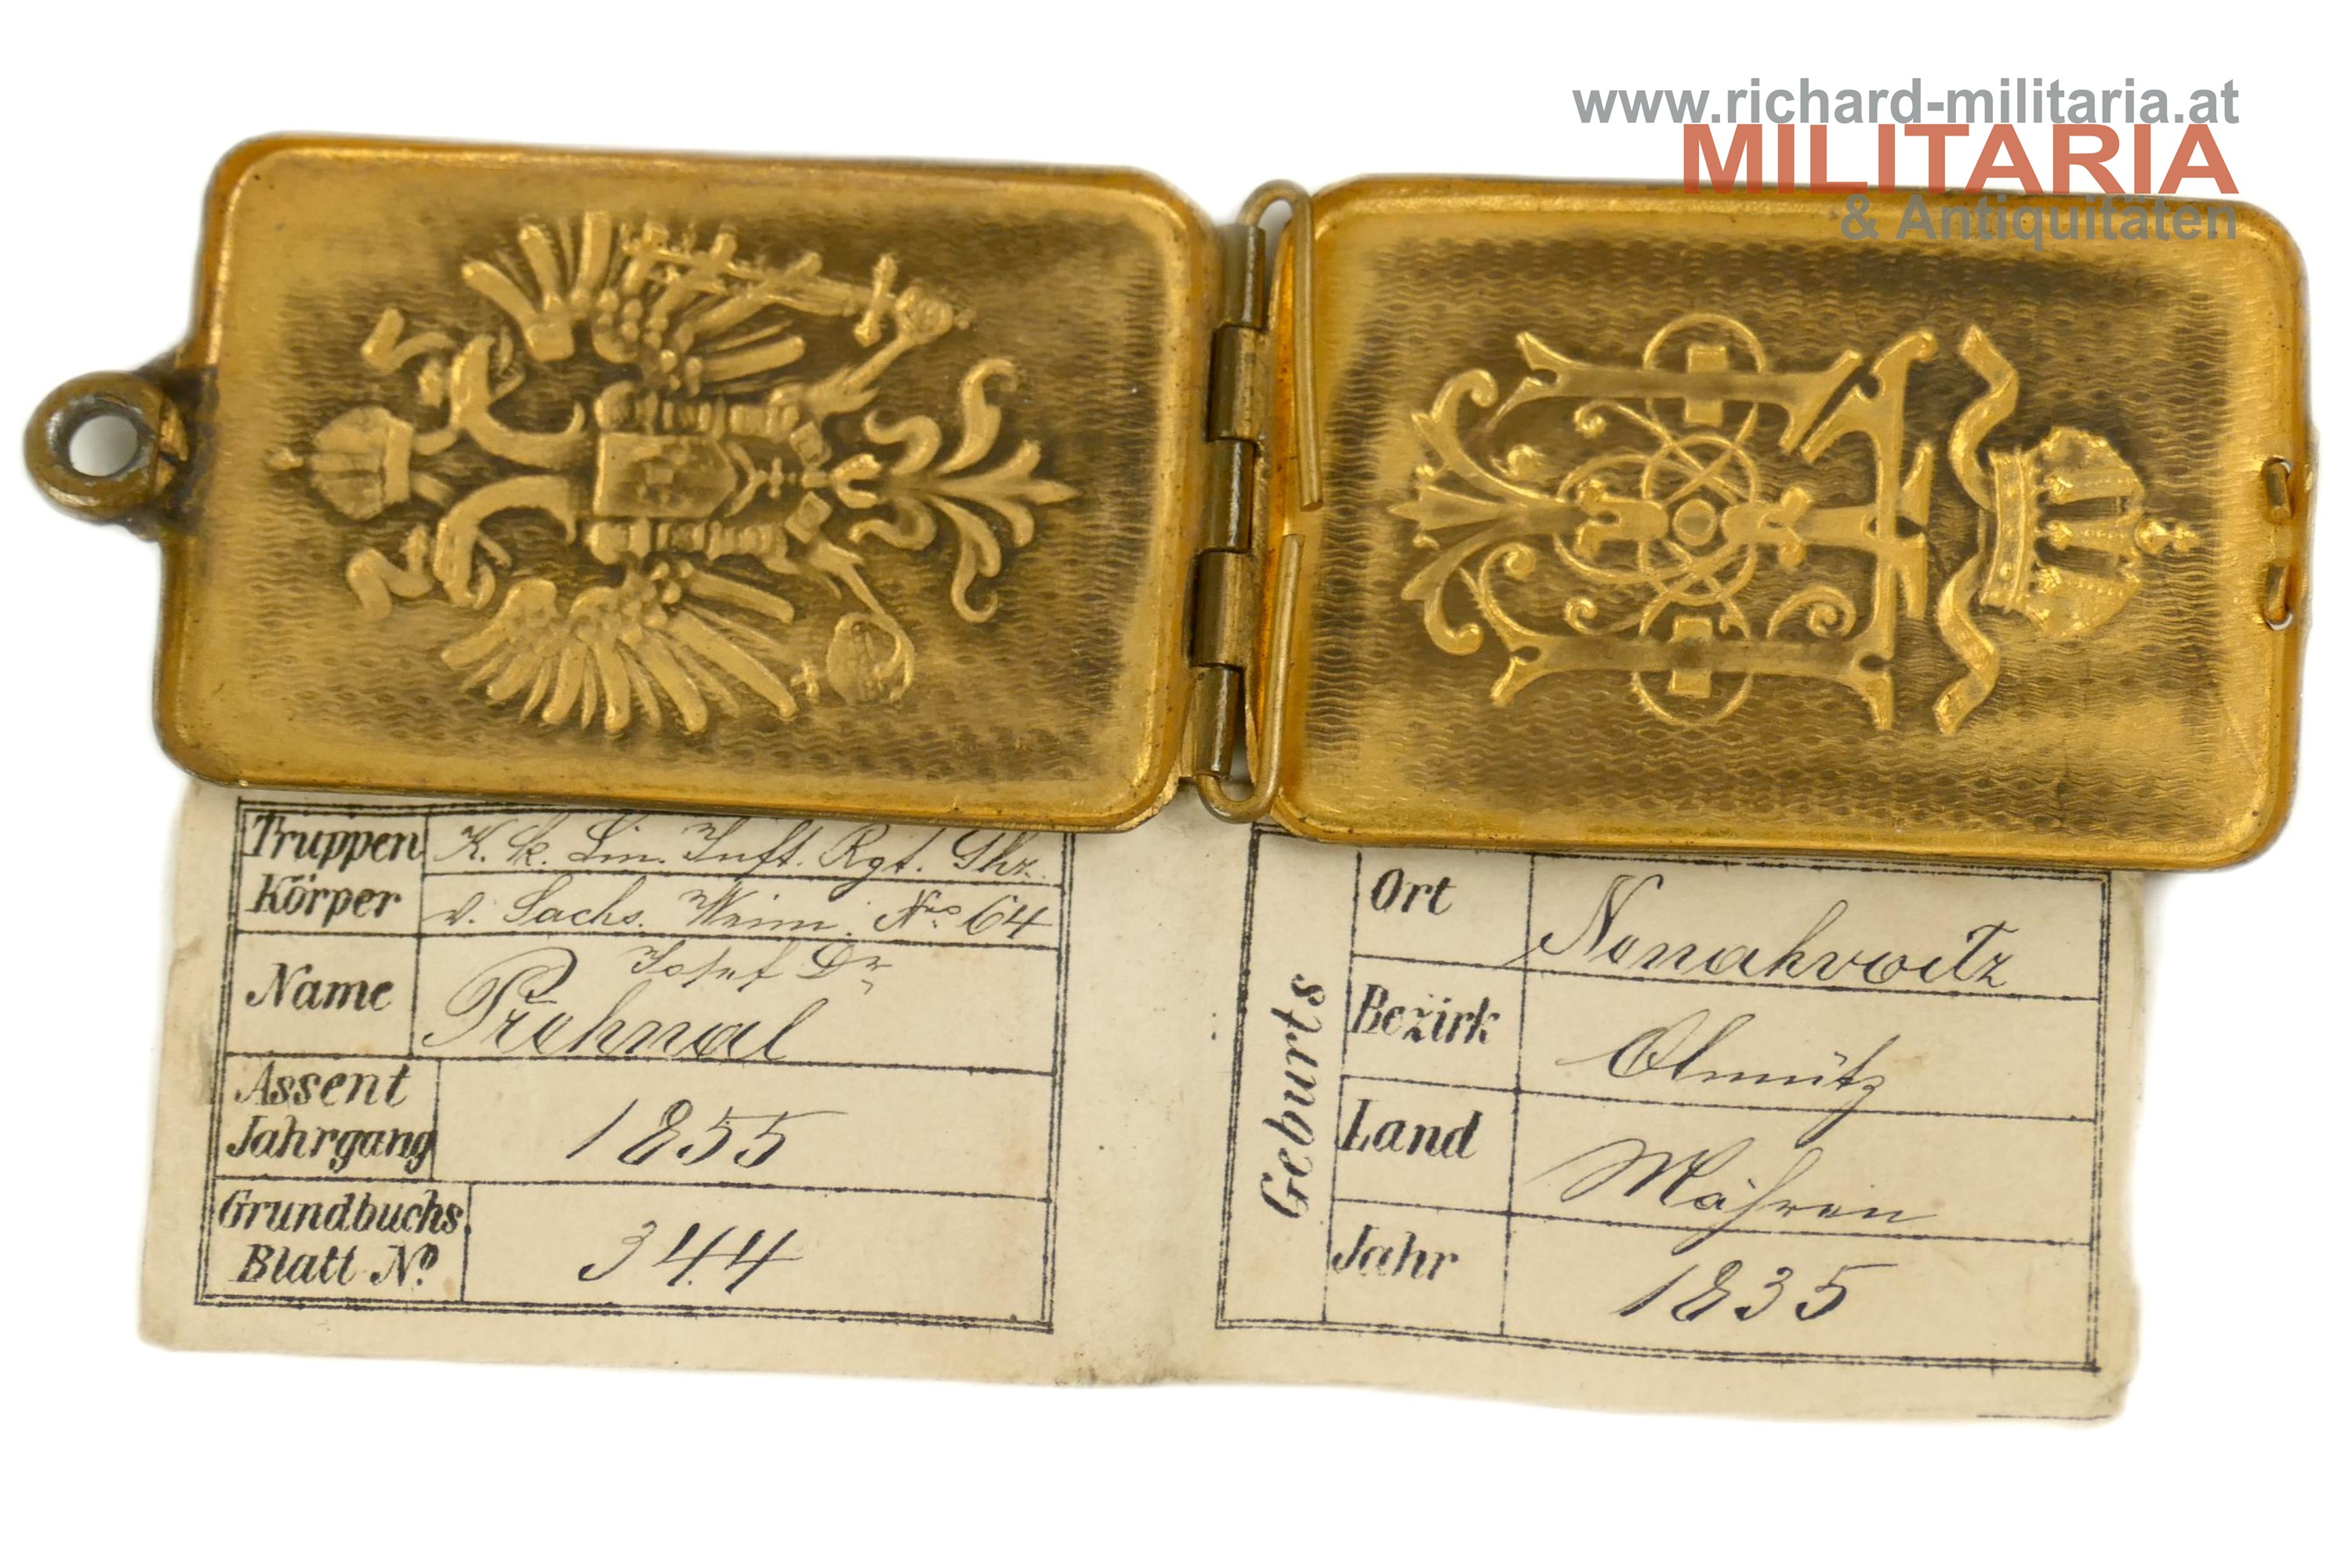 www.richard-militaria.at
MILITARIA
& Antiquitäten
Truppen Körper
K. k. Lin. Inft. Rgt. Ghz.
v. Sachs. Weim. Nro 64
Name
Josef Dr
Přehnal
Assent Jahrgang
1855
Grundbuchs Blatt No.
344
Geburts
Ort
Bezirk
Olmütz
Land
Mähren
Jahr
1835